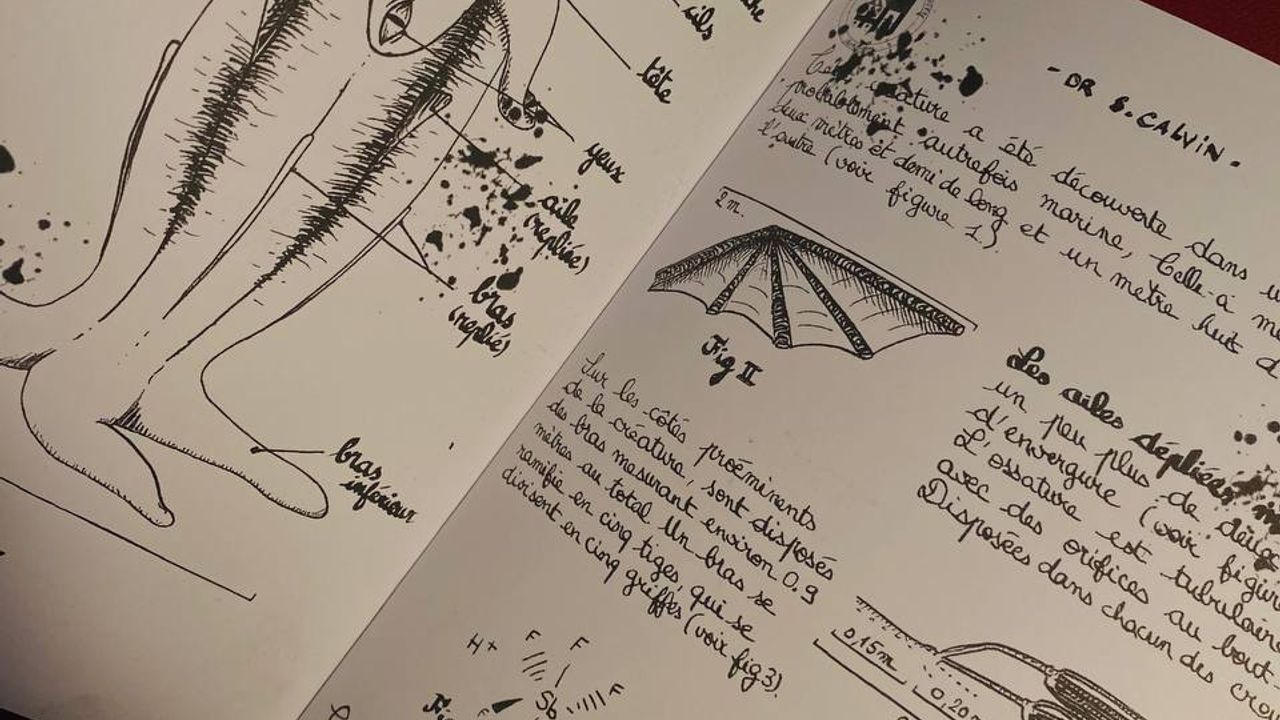 cils
tête
yeux
aile
(repliée)
bras
(replié)
bras
inférieur
- DR S. CALVIN -
créature a été découverte dans
probablement autrefois marine, Celle-à
deux mètres et demi de long et un mètre huit
l'autre (voir figure 1)
2 m.
Fig II
Les ailes dépliées
un peu plus de deux
d'envergure (voir figure
L'ossature est tubulaire
avec des orifices au bout
Disposées dans chacun des
Sur les côtés proéminents
de la créature, sont disposés
des bras mesurant environ 0.9
mètres au total Un bras se
ramifie en cinq tiges, qui se
divisent en cinq griffes (voir fig 3).
0,15m
0,20m
H+
F
F
F
Sb